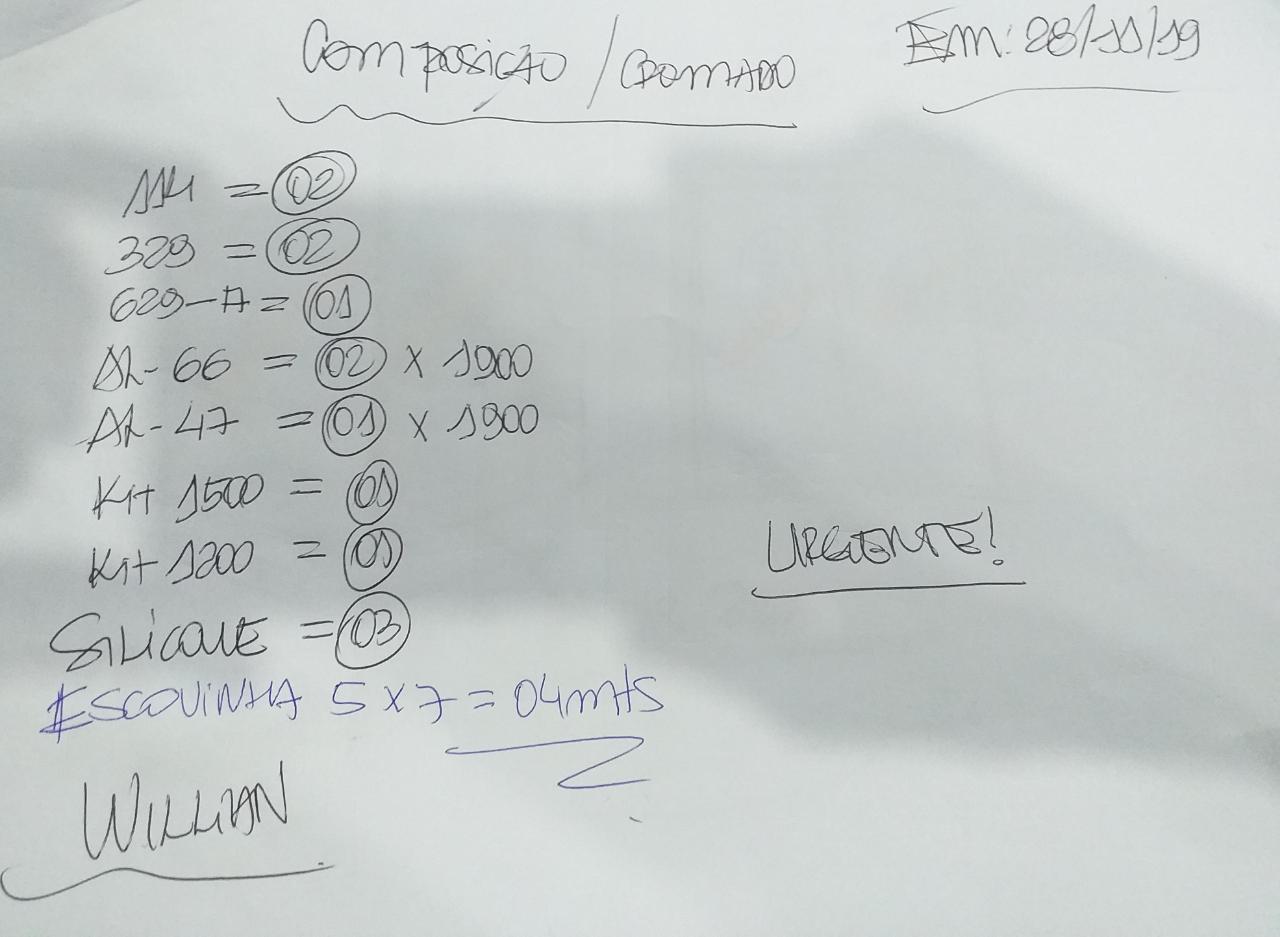 Composição / CROMADO
Em: 28/11/19
114 = 02
329 = 02
629-A = 01
AL-66 = 02 x 1900
AL-47 = 01 x 1900
Kit 1500 = 01
Kit 1200 = 01
URGENTE!
SILICONE = 03
ESCOVINHA 5 x 7 = 04 mts
WILLIAN